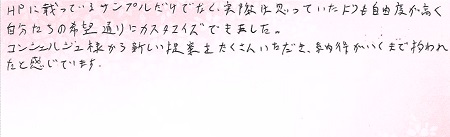 HPに載っているサンプルだけでなく、実際は思っていたよりも自由度が高く
自分たちの希望通りにカスタマイズできました。
コンシェルジュ様から新しい提案をたくさんいただき、納得がいくまで拘われ
たと感じています。